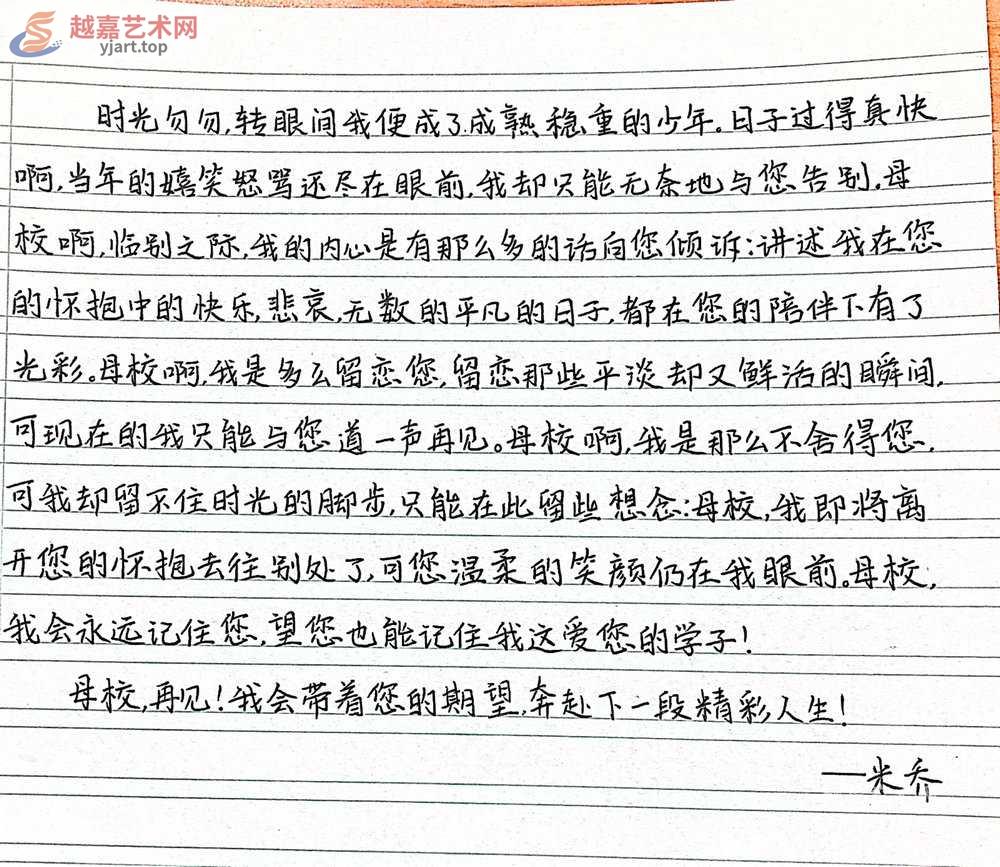 越嘉艺术网
yjart.top
时光匆匆,转眼间我便成了成熟稳重的少年。日子过得真快
啊,当年的嬉笑怒骂还尽在眼前,我却只能无奈地与您告别。母
校啊,临别之际,我的内心是有那么多的话向您倾诉:讲述我在您
的怀抱中的快乐,悲哀,无数的平凡的日子,都在您的陪伴下有了
光彩。母校啊,我是多么留恋您,留恋那些平淡却又鲜活的瞬间,
可现在的我只能与您道一声再见。母校啊,我是那么不舍得您,
可我却留不住时光的脚步,只能在此留些想念:母校,我即将离
开您的怀抱去往别处了,可您温柔的笑颜仍在我眼前。母校,
我会永远记住您,望您也能记住我这爱您的学子!
母校,再见!我会带着您的期望,奔赴下一段精彩人生!
——米乔